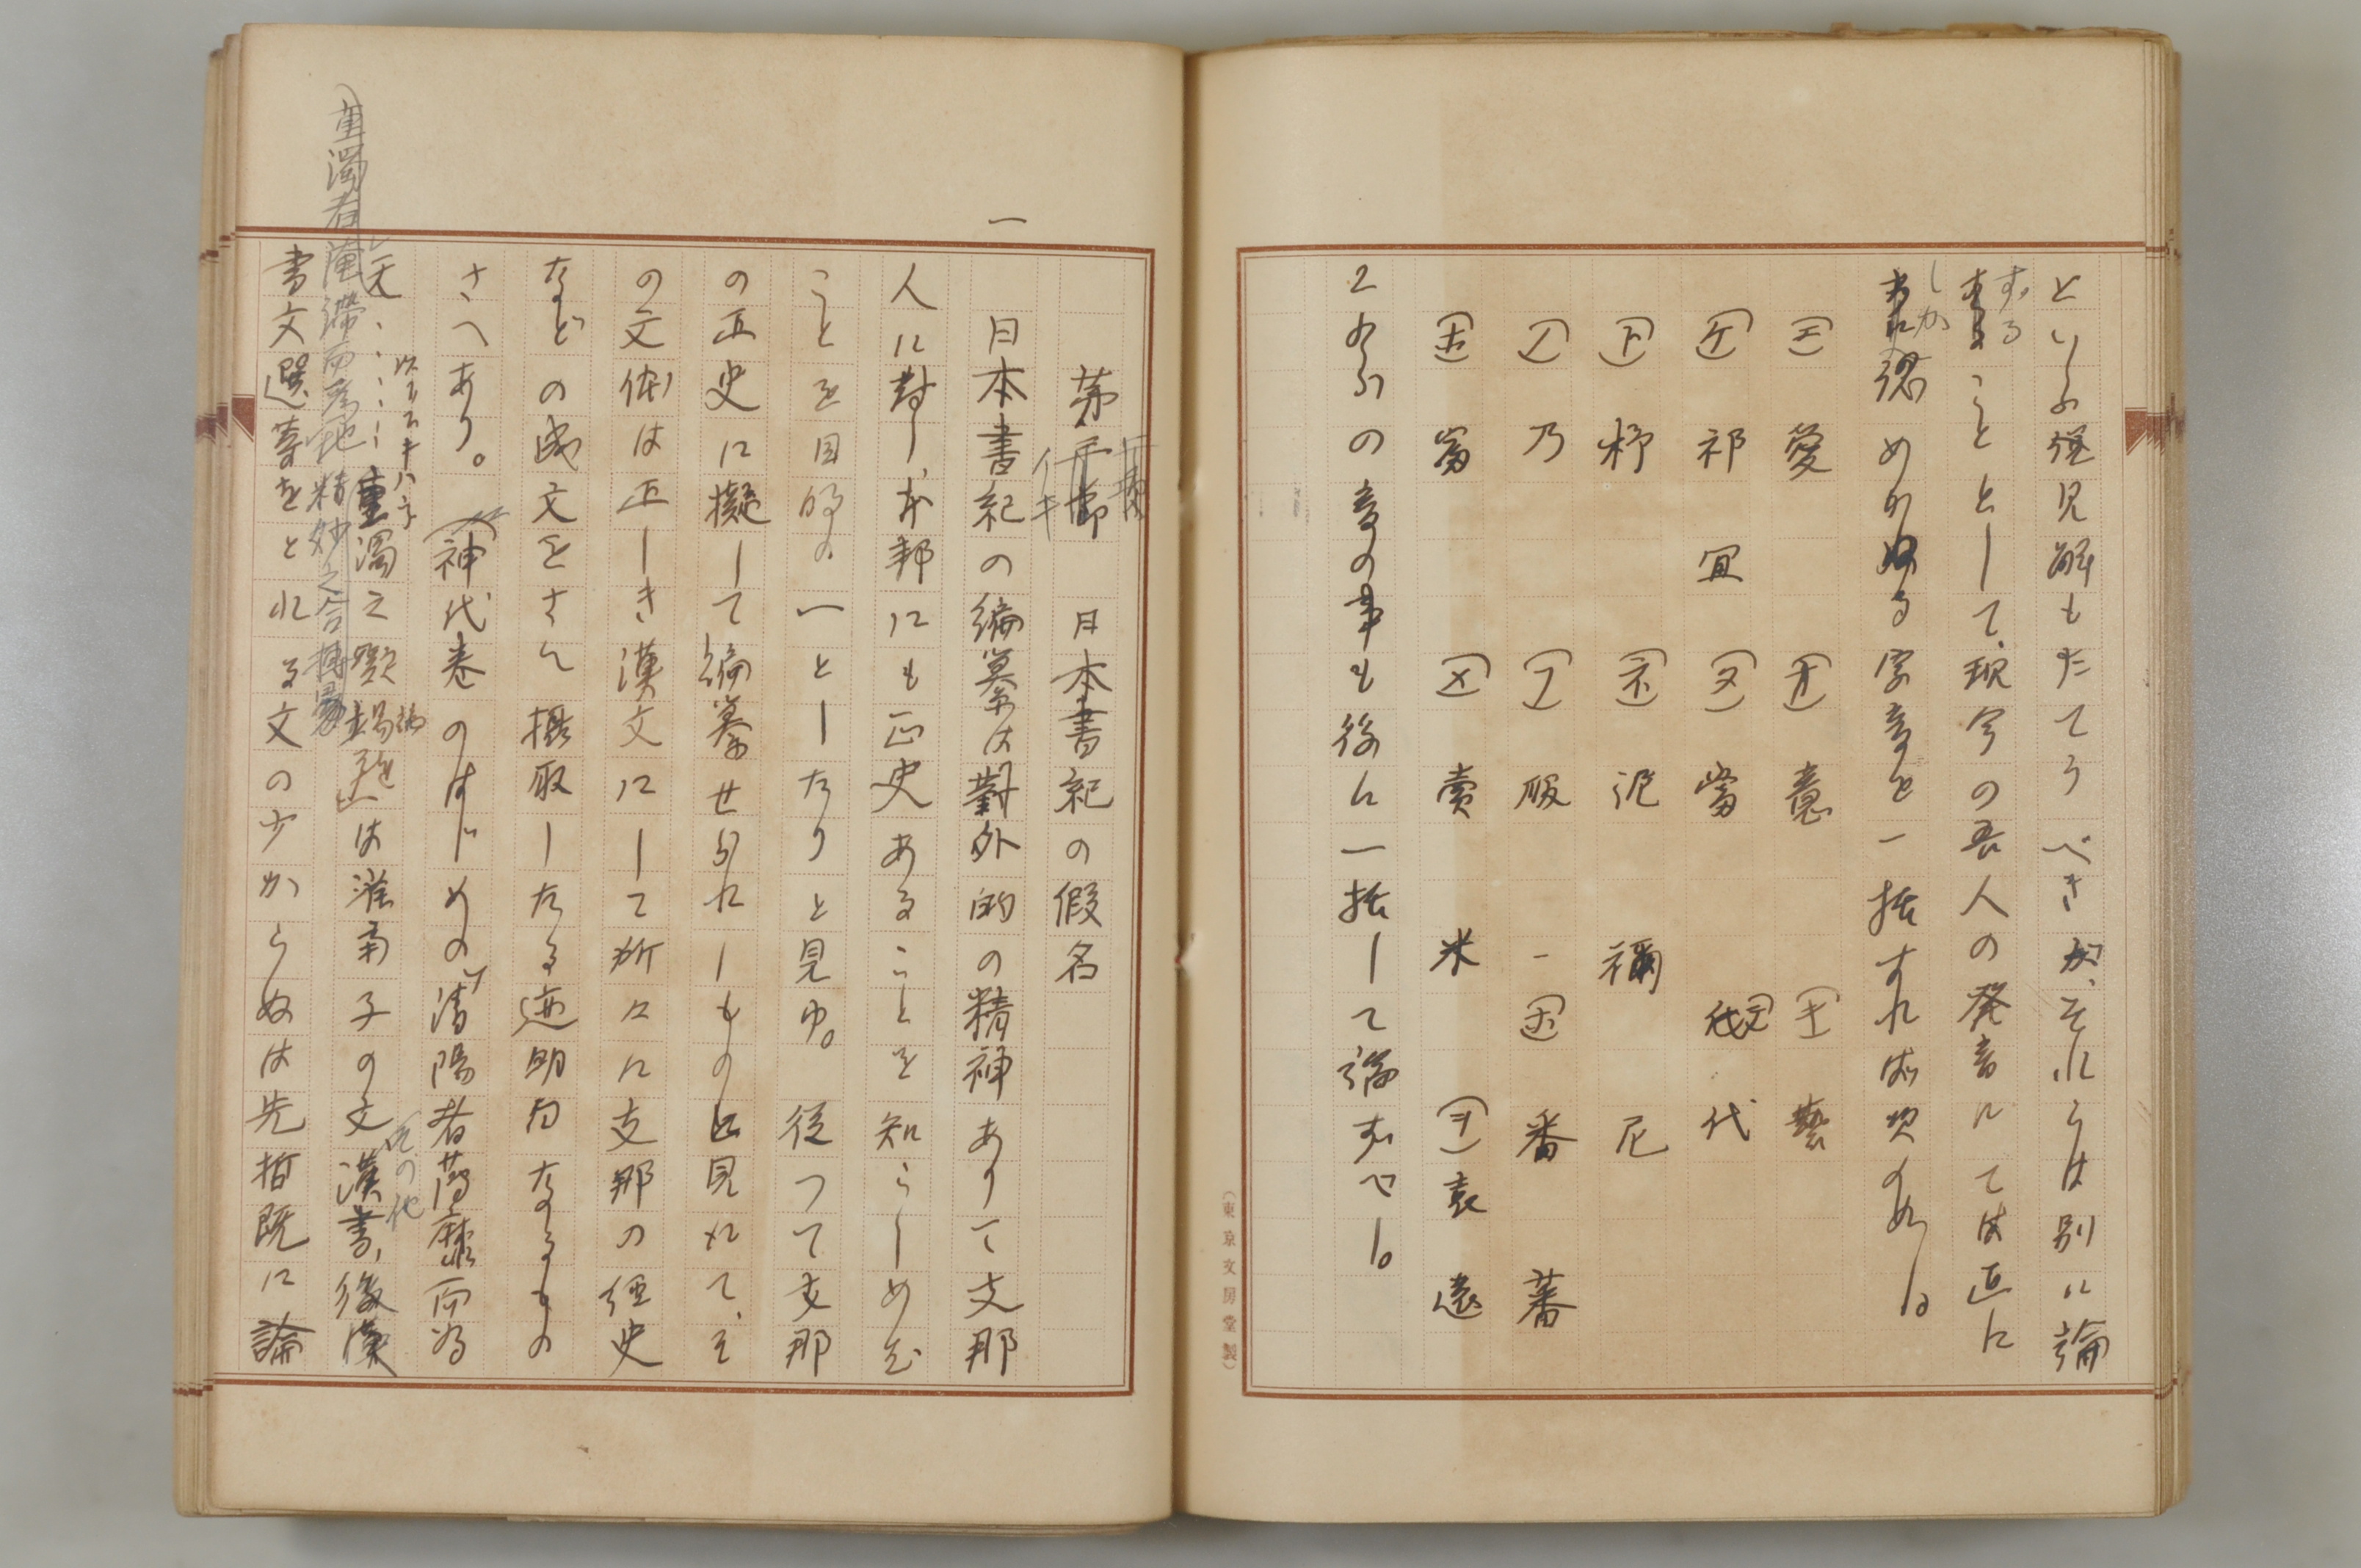 といふ強見解もたてうべきが、それらは別に論
することとして、現今の吾人の発音にては直に
しか認めかぬる字音を一括すれば次の如し。
(エ)愛 (オ)意 (キ)藝
(ケ)祁 宜 (タ)當 (テ)代
(ト)杼 (ネ)泥 禰 尼
(ノ)乃 (フ)服 (ホ)番 蕃
(ホ)富 (メ)賣 米 (ヲ)袁 遠
これらの音の事も後に一括して論ずべし。
(東京文房堂製)
日本書紀の假名
一
日本書紀の編纂は對外的の精神ありて支那
人に對し、本邦にも正史あることを知らしめむ
ことを目的の一としたりと見ゆ。從つて支那
の正史に擬して編纂せられしものと見えて、そ
の文体は正しき漢文にして所々に支那の經史
などの成文をさへ摂取したる迹明白なるもの
さへあり。神代巻のはじめの「清陽者薄靡而為
天……重濁之凝竭難」は淮南子の文、漢書、後漢
その他
書文選等をとれる文の少からぬは先哲既に論
重濁者淹滞而為地精妙之合搏易